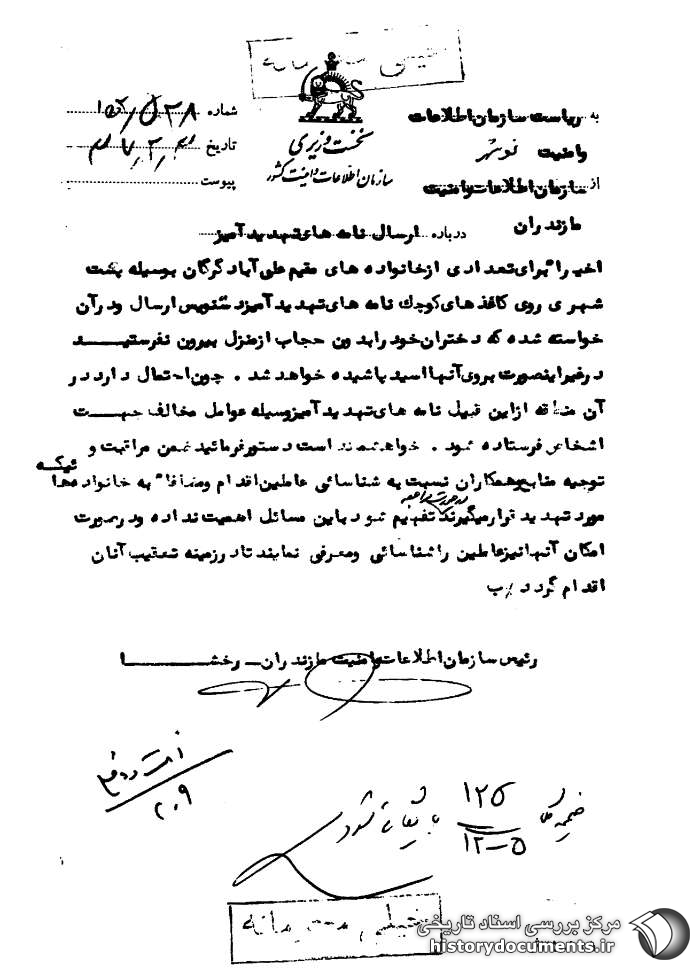 خیلی محرمانه
به ریاست سازمان اطلاعات
وامنیت نوشهر
از سازمان اطلاعات وامنیت
مازندران
نخست وزیری
سازمان اطلاعات و امنیت کشور
شماره
تاریخ
پیوست
درباره ارسال نامه های تهدید آمیز
اخیرا" برای تعدادی ازخانواده های مقیم علی آباد گرگان بوسیله پست
شهری روی کاغذ های کوچک نامه های تهدید آمیزدستنویس ارسال ودرآن
خواسته شده که دختران خود رابدون حجاب ازمنزل بیرون نفرستینـــد
درغیراینصورت بروی آنها اسید پاشیده خواهد شد . چون احتمال دارد در
آن منطقه ازاین قبیل نامه های تهدید آمیزوسیله عوامل مخالف جهـــت
اشخاص فرستاده شود . خواهشمند است دستورفرمائید ضمن مراقبت و
توجیه منابع وهمکاران نسبت به شناسائی عاملین اقدام ومضافا" به خانواده هائیکه
مورد تهدید قرارمیگیرند تفهیم شود باین مسائل اهمیت نداده ودرصورت
امکان آنهانیزعاملین راشناسائی ومعرفی نمایند تادرزمینه تعقیب آنان
اقدام گردد
رئیس سازمان اطلاعات وامنیت مازندران ـ رخشـــــا
۲۰۹
۱۲۵
بایگانی شود
۱۲-۵
خیلی محرمانه
مرکز بررسی اسناد تاریخی
historydocuments.ir